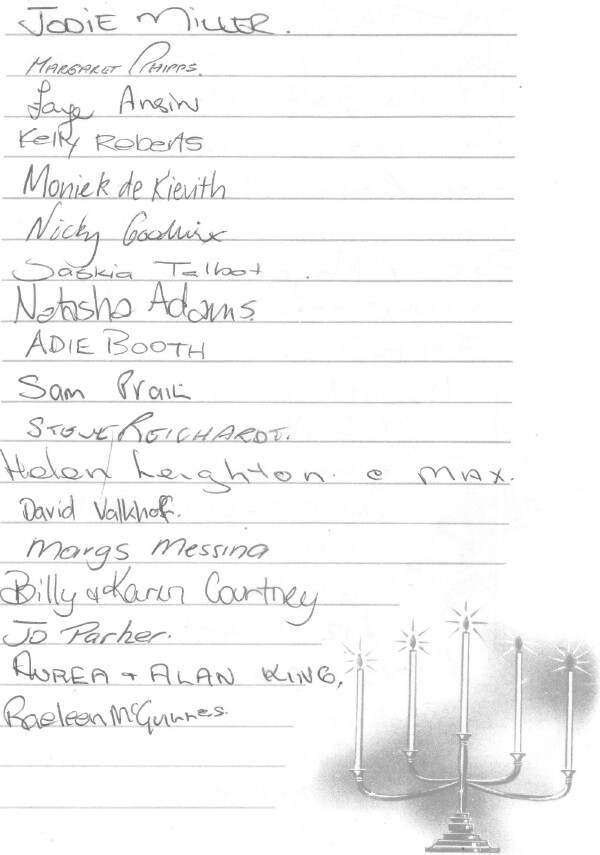 JODIE MILLER.
MARGARET PHIPPS.
Faye Ansin
Kelly Roberts
Moniek de Kievith
Nicky Goodwix
Saskia Talbot
Natasha Adams.
ADIE BOOTH
Sam
STEVE REICHARDT.
Helen Leighton. e MAX.
David Valkhof.
Margs Messina
Billy & Karin Courtney
Jo Parker.
AUREA + ALAN KING,
Raeleen McGuinnes.